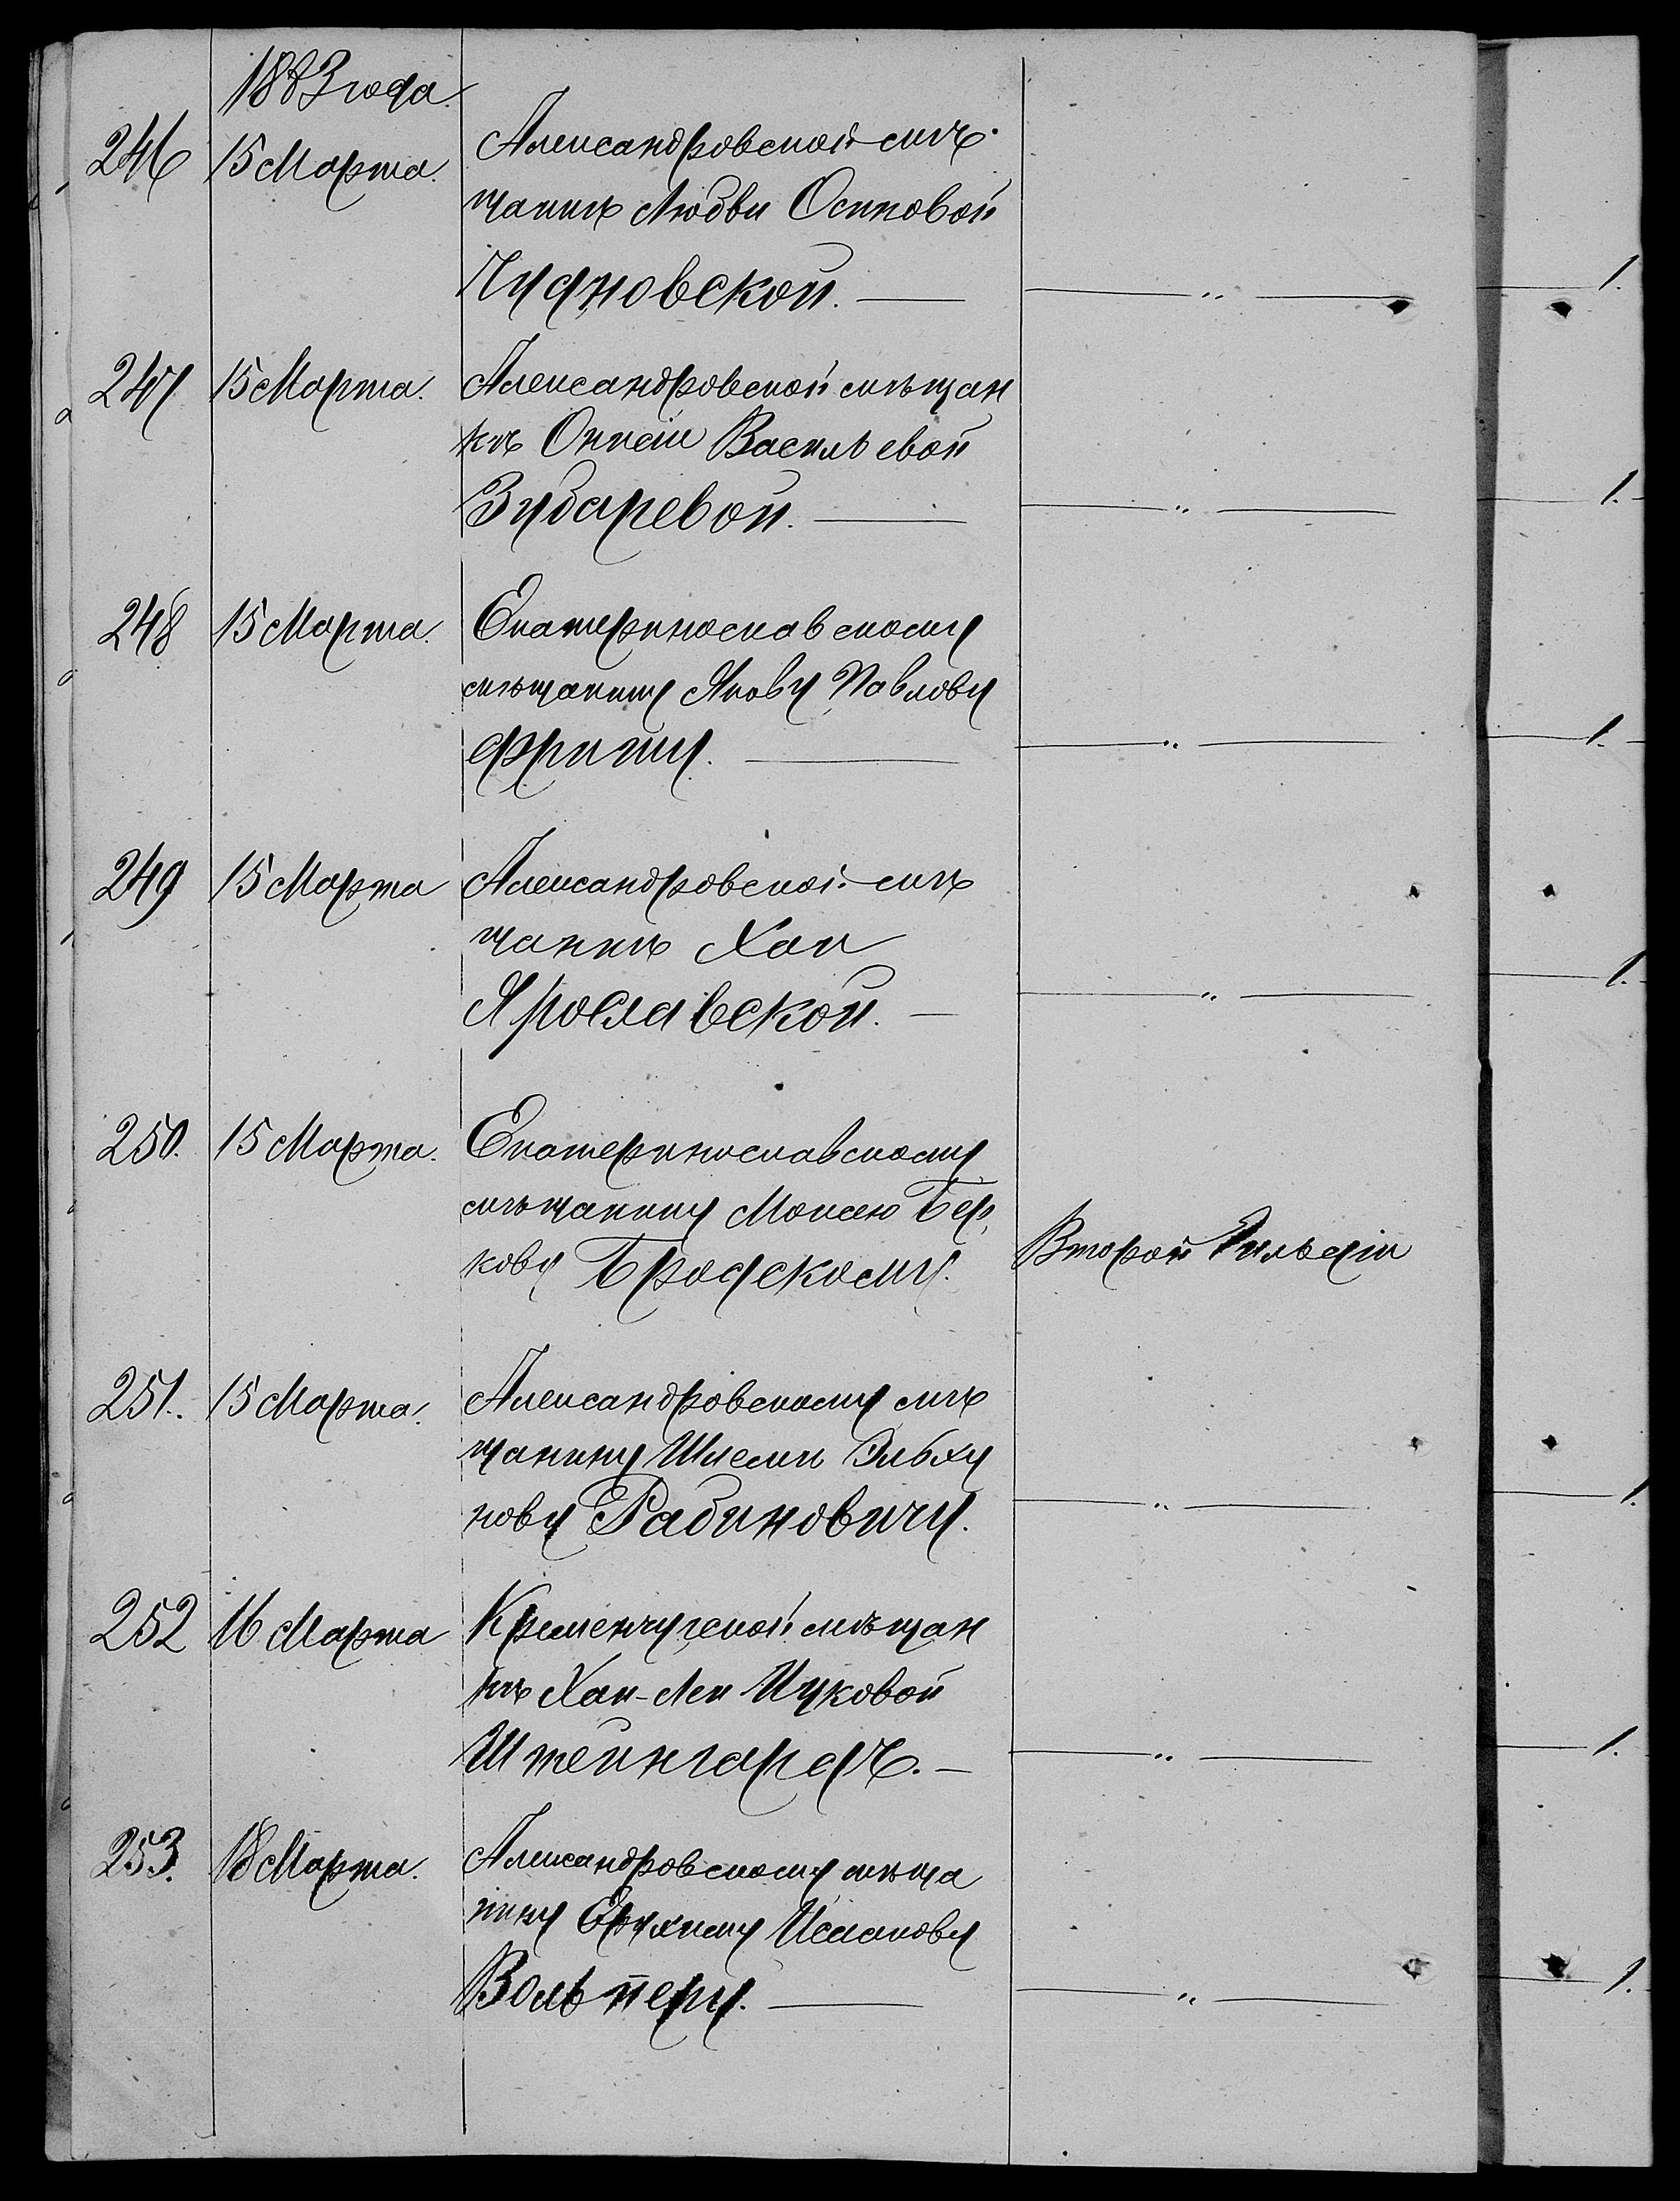 1883 года.
246 15 Марта. Александровской мѣ-
щанкѣ Любви Осиповой
Чудновской. — — „ — 1.
247 15 Марта. Александровской мѣщан
кѣ Васильевой
Зубаревой. — — „ — 1.
248 15 Марта. Екатеринославскому
мѣщанину Якову Павлову
— — „ — 1.
249 15 Марта Александровской мѣ
щанкѣ Хаи
Ярославской. — — „ — 1.
250. 15 Марта. Екатеринославскому
мѣщанину Моисею Бер,
кову Бродскому. Второй Гильдіи
251. 15 Марта. Александровскому мѣ
щанину Шлеми Эльху
нову Рабиновичу. — „ — 1.
252 16 Марта Кременчугской мѣщан
кѣ Хаи-Леи Ицковой
Штейнгардъ. — — „ — 1.
253. 18 Марта. Александровскому мѣща
нину Ерухиму Исаакову
Вольперу. — — „ — 1.